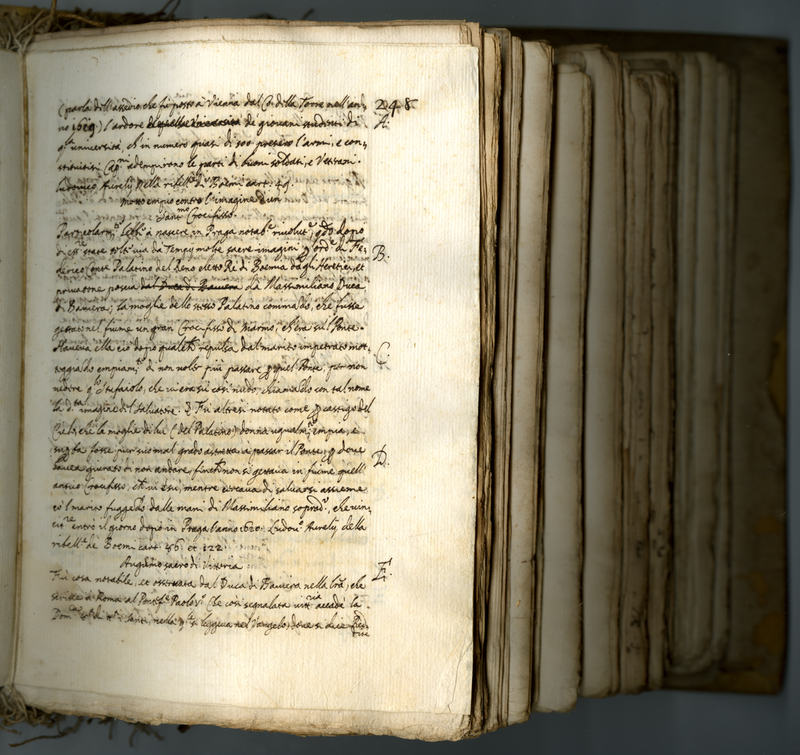 (parla dell'assedio che fù posto à Viena dal Co: della Torre nell'an- 248.
no 1619) l'ardore de giovani studenti di A.
qta università, ch'in numero quasi di 500 presero l'armi, e con-
adempirono le parti di buoni soldati, e Vetrani.
Ludovico Aurelij nella ribell. di Boemi cart. 49.
Motto empio contro l'imagine d'un
Santmo Crocifisso.
à nascere in Praga dopo
di esre state tolte via da Tempij molte sacre imagini ordne di Fe- B.
derico Conte Palatino del Reno eletto Re di Boemia dagli Heretici, et
poscia dal Duca di Bauiera da Massimiliano Duca
di Bauiera; la moglie dello stesso Palatino commandò, che fusse
gettato nel fiume un gran Crocifisso di marmo, ch'era sul Ponte.
Haveva ella ciò dopo qualche repulsa dal marito impetrato mot- C.
teggiando empiamte di non voler più passare quel Ponte, per non
che vi era sù così nudo, chiamando con tal nome
la dta imagine del Salvatore. Fù altresi notato come castigo del
Cielo, chè la moglie di lui (del Palatino) donna ugualmte empia, e
fosse pur suo mal grado astretta à passar il Ponte, dove D.
haueva giurato di non andare, finche non si gettava in fiume quell'
antico Crocifisso, ch'vi è sù, mentre cercava di salvarsi assieme
co'l marito fuggendo dalle mani di Massimiliano sopradto, che vin-
citre entrò il giorno dopo in Praga l'anno 1620. Ludovo Aurelij della
ribella de Boemi cart. 96. et 122.
Augurio sacro di Vittoria E.
Fù cosa notabile, et osservata dal Duca di Baviera nella lra, che
scrisse à Roma al Pontefe Paolo Vo Che così segnalata vittria accadè la
Domca nella si leggeva nel Vangelo, dove si dice